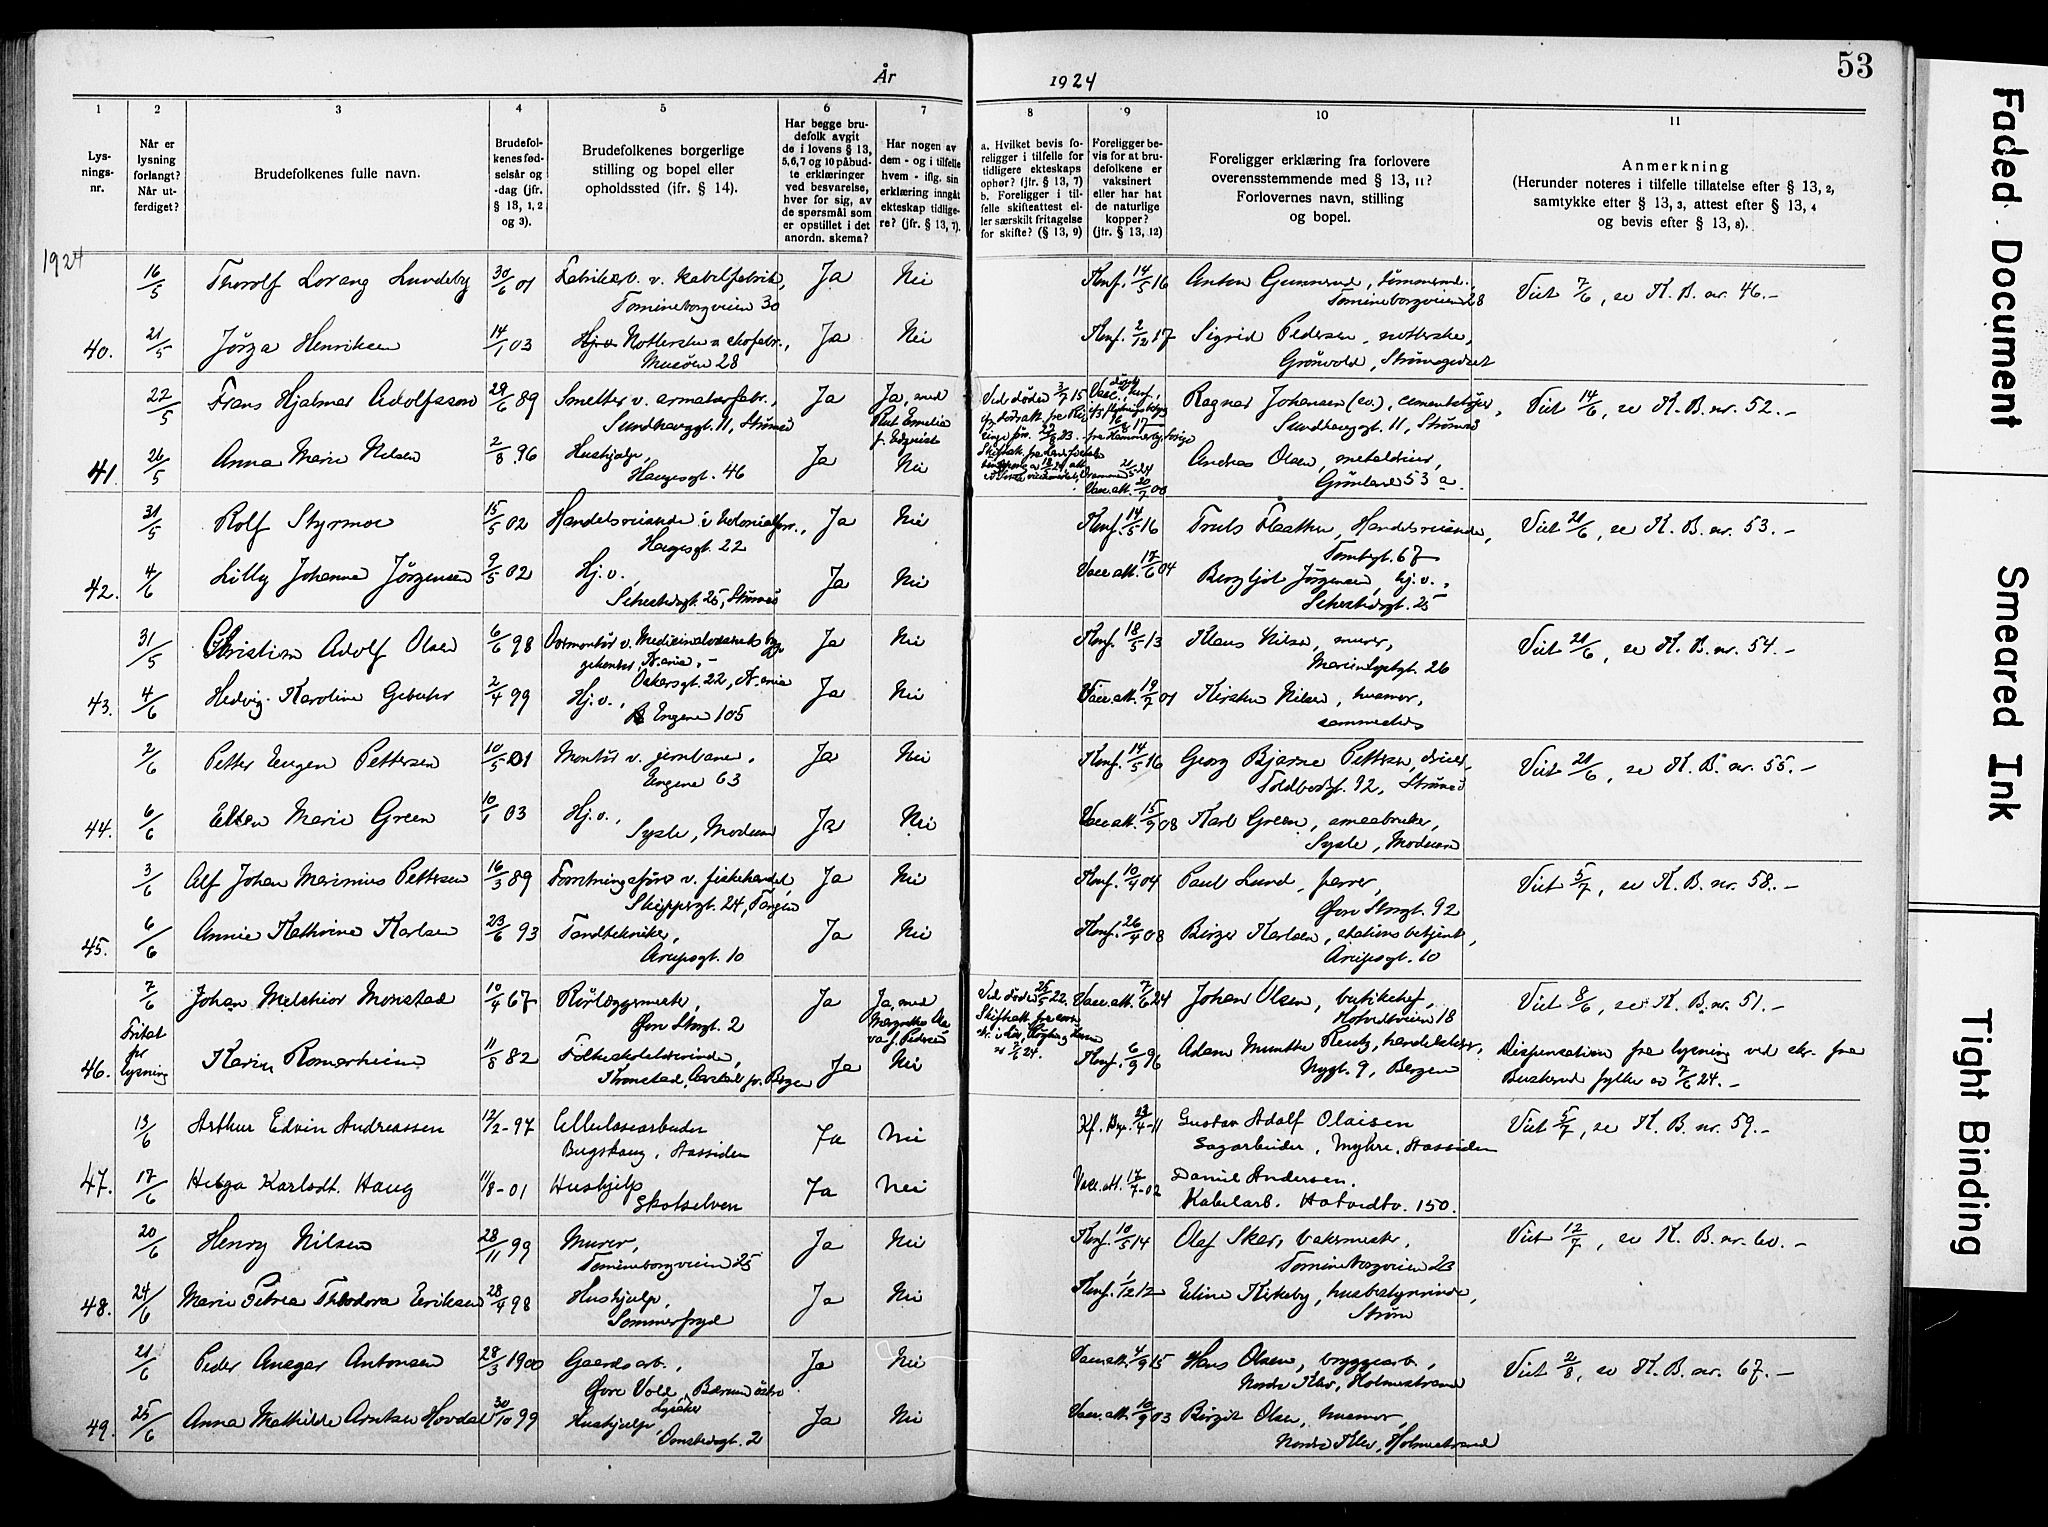 År 1924
53
1 2 3 4 5 6 7 8 9 10 11
Lys-
nings-
nr.
Når er
lysning
forlangt?
Når ut-
ferdiget?
Brudefolkenes fulle navn.
Brudefol-
kenes fød-
selsår og
-dag (jfr.
§ 13, 1, 2
og 3).
Brudefolkenes borgerlige
stilling og bopel eller
opholdssted (ifr. § 14).
Har begge bru-
defolk avgit
de i lovens § 13,
5, 6, 7 og 10 påbud-
te erklæringer
ved besvarelse,
hver for sig, av
de spørsmål som
er opstillet i det
anordn. skema?
Har nogen av
dem - og i tilfelle
hvem - iflg. sin
erklæring inngåt
ekteskap tidlige-
re? (jfr. § 13, 7).
a. Hvilket bevis fo-
religger i tilfelle for
tidligere ekteskaps
ophør? (jfr. § 13, 7)
b. Foreligger i til-
felle skifteattest el-
ler særskilt fritagelse
for skifte? (§ 13, 9)
Foreligger be-
vis for at bru-
defolkene er
vaksinert
eller har hat
de naturlige
kopper?
(jfr. § 13, 12)
Foreligger erklæring fra forlovere
overensstemmende med § 13, 11?
Forlovernes navn, stilling
og bopel.
Anmerkning
(Herunder noteres i tilfelle tillatelse efter § 13, 2,
samtykke efter § 13, 3, attest efter § 13, 4
og bevis efter § 13, 8).
1924
16/5 Thorolf Lorang Lundeby 30/6 01 Fabrikarb. v. kabelfabrik, Ja Nei Konf. 14/5 16 Anton Gunnerud, tømmerm., Viet 7/6, se K. B. nr. 46.-
Tomineborgveien 30 Tomineborgveien 28
40. 21/5 Jörga Henriksen 14/1 03 Hj.v. Notterske v. skofabr., Ja Nei Konf. 2/12 17 Sigrid Pedersen, notterske,
Musøen 28 Grönvold, Strømsgodset
22/5 Frans Hjalmar Adolfsson 29/6 89 Smelter v. armaturfabr., Ja Ja, med Ved döden 3/7 15 Ragnar Johansen (ev.), cementstøper, Viet 14/6, se K. B. nr. 52.-
Sundhauggt. 11, Strømsö Rut Emelia Sundhauggt. 11, Strømsö
f. Edqvist
41. 26/5 Anna Marie Nilsen 2/8 96 Hushjelp, Ja Nei Andreas Olsen, metaldreier,
Haugesgt. 46 Vacc.att. 20/7 00 Grønland 53 a.
31/5 Rolf Styrmoe 15/5 02 Handelsreisende i kolonialforr., Ja Nei Konf. 14/5 16 Truls Flaatten, Handelsreisende, Viet 21/6, se K. B. nr. 53.-
Haugesgt. 22 Tomtegt. 67
42. 4/6 Lilly Johanne Jørgensen 9/5 02 Hj.v., Ja Nei Vacc.att. 17/6 04 Bergljot Jørgensen, hj.v.,
Schestedsgt. 25, Strømsö Schestedsgt. 25
31/5 Christian Adolf Olsen 6/6 98 Ja Nei Konf. 18/5 13 Klaus Nilsen, murer, Viet 21/6, se K. B. nr. 54.-
Oskersgt. 22, Kr.ania Marienlystgt. 26
43. 4/6 Hedvig Karoline Gebuhr 2/4 99 Hj.v., Ja Nei Vacc.att. 19/7 01 Kirsten Nilsen, husmor,
Engene 105 sammesteds
2/6 Petter Eugen Pettersen 10/5 01 Montör v. jernbane, Ja Nei Konf. 14/5 16 Georg Bjarne Pettersen, dreier, Viet 21/6, se K. B. nr. 55.-
Engene 63 Toldbodgt. 92, Strømsö
44. 6/6 Ellen Marie Green 10/1 03 Hj.v., Ja Nei Vacc.att. 15/9 08 Karl Green, smaabruker,
Sysle, Modum Sysle, Modum
3/6 Alf Johan Marinius Pettersen 16/3 89 Forretningsfører v. fiskehandel, Ja Nei Konf. 10/4 04 Paul Lund, Viet 5/7, se K. B. nr. 58.-
Skippergt. 24, Tangen Øvre Storgt. 92
45. 6/6 Annie Kathrine Karlsen 23/6 93 Tandtekniker, Ja Nei Konf. 26/4 08 Birger Karlsen, stationsbetjent,
Arupsgt. 10 Arupsgt. 10
7/6 Johan Melchior Monstad 10/4 67 Rörlæggermester, Ja Ja, med Ved döden 25/5 22. Vacc.att. 7/6 24 Johan Olsen, butikchef, Viet 8/6, se K. B. nr. 51.-
Øvre Storgt. 2 Hotvedtveien 18
46. Fritat for lysning Karin Romarheim 11/8 82 Folkeskolelærerinde, Ja Nei Konf. 6/9 96 Adam Munthe Reutz, handelsbestyrer, Dispensation fra lysning ved skr. fra
Kronstad, Aarstad pr. Bergen Nygt. 9, Bergen Buskerud fylke av 7/6 24.-
13/6 Arthur Edvin Andreassen 12/2-97 Cellulosearbeider Ja Nei Kf. Dp. 23/4-11 Gustav Adolf Olaisen Viet 5/7, se K. B. nr. 59.-
Bugskaug, Aassiden Sagarbeider, Myhre, Aassiden
47. 17/6 Helga Karlsdt. Haug 11/8-01 Hushjelp Ja Nei Vacc.att. 17/7-02 Daniel Andersen.
Skotselven Kabelarb. Hotvedtv. 150.
20/6 Henry Nilsen 28/11 99 Murer, Ja Nei Konf. 10/5 14 Olaf Skar, bakermester, Viet 12/7, se K. B. nr. 60.-
Tomineborgveien 25 Tomineborgveien 23
48. 24/6 Marie Petrea Theodora Eriksen 28/4 98 Hushjelp, Ja Nei Konf. 1/12 12 Eline Kirkeby, husbestyrerinde,
Sommerfryd Strøm
21/6 Peder Ansgar Antonsen 28/3 1900 Gaardsarb., Ja Nei Vacc.att. 4/9 15 Hans Olsen, bryggearb., Viet 2/8, se K. B. nr. 67.-
Øvre Voll, Bærum østre Nordre Klev, Holmestrand
Lysaker
49. 25/6 Anna Mathilde Arntsen Hovdal 30/10 99 Hushjelp, Ja Nei Vacc.att. 10/9 03 Birgit Olsen, husmor,
Omstedsgt. 2 Nordre Klev, Holmestrand
Faded Document
Smeared Ink
Tight Binding